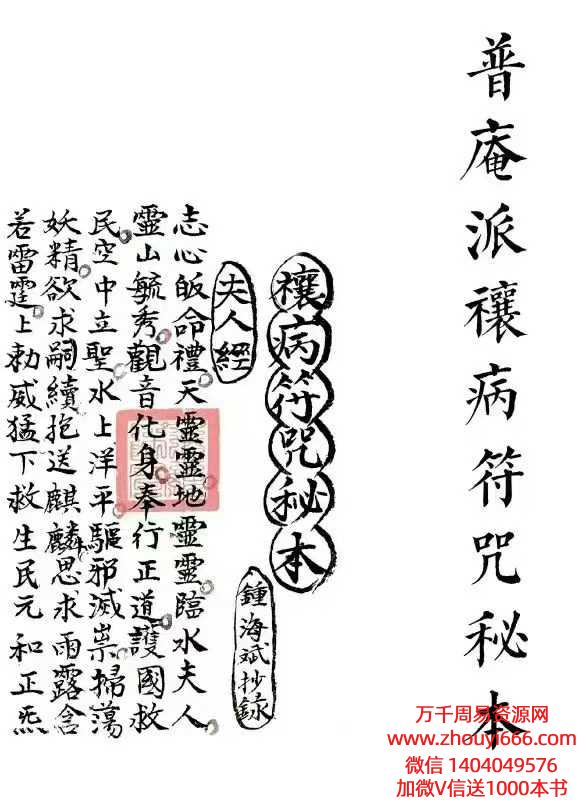 普庵派禳病符咒秘本
禳病符咒秘本
鍾海斌抄録
夫人經
志心皈命禮天靈靈地靈靈臨水夫人
靈山毓秀觀音化身奉行正道護國救
民空中立聖水上洋平驅邪滅祟掃蕩
妖精欲求嗣續抱送麒麟思求雨露含
若雷霆上勅威猛下救生民元和正炁
万千周易资源网
www.zhouyi666.com
微信 1404049576
加微V信送1000本书